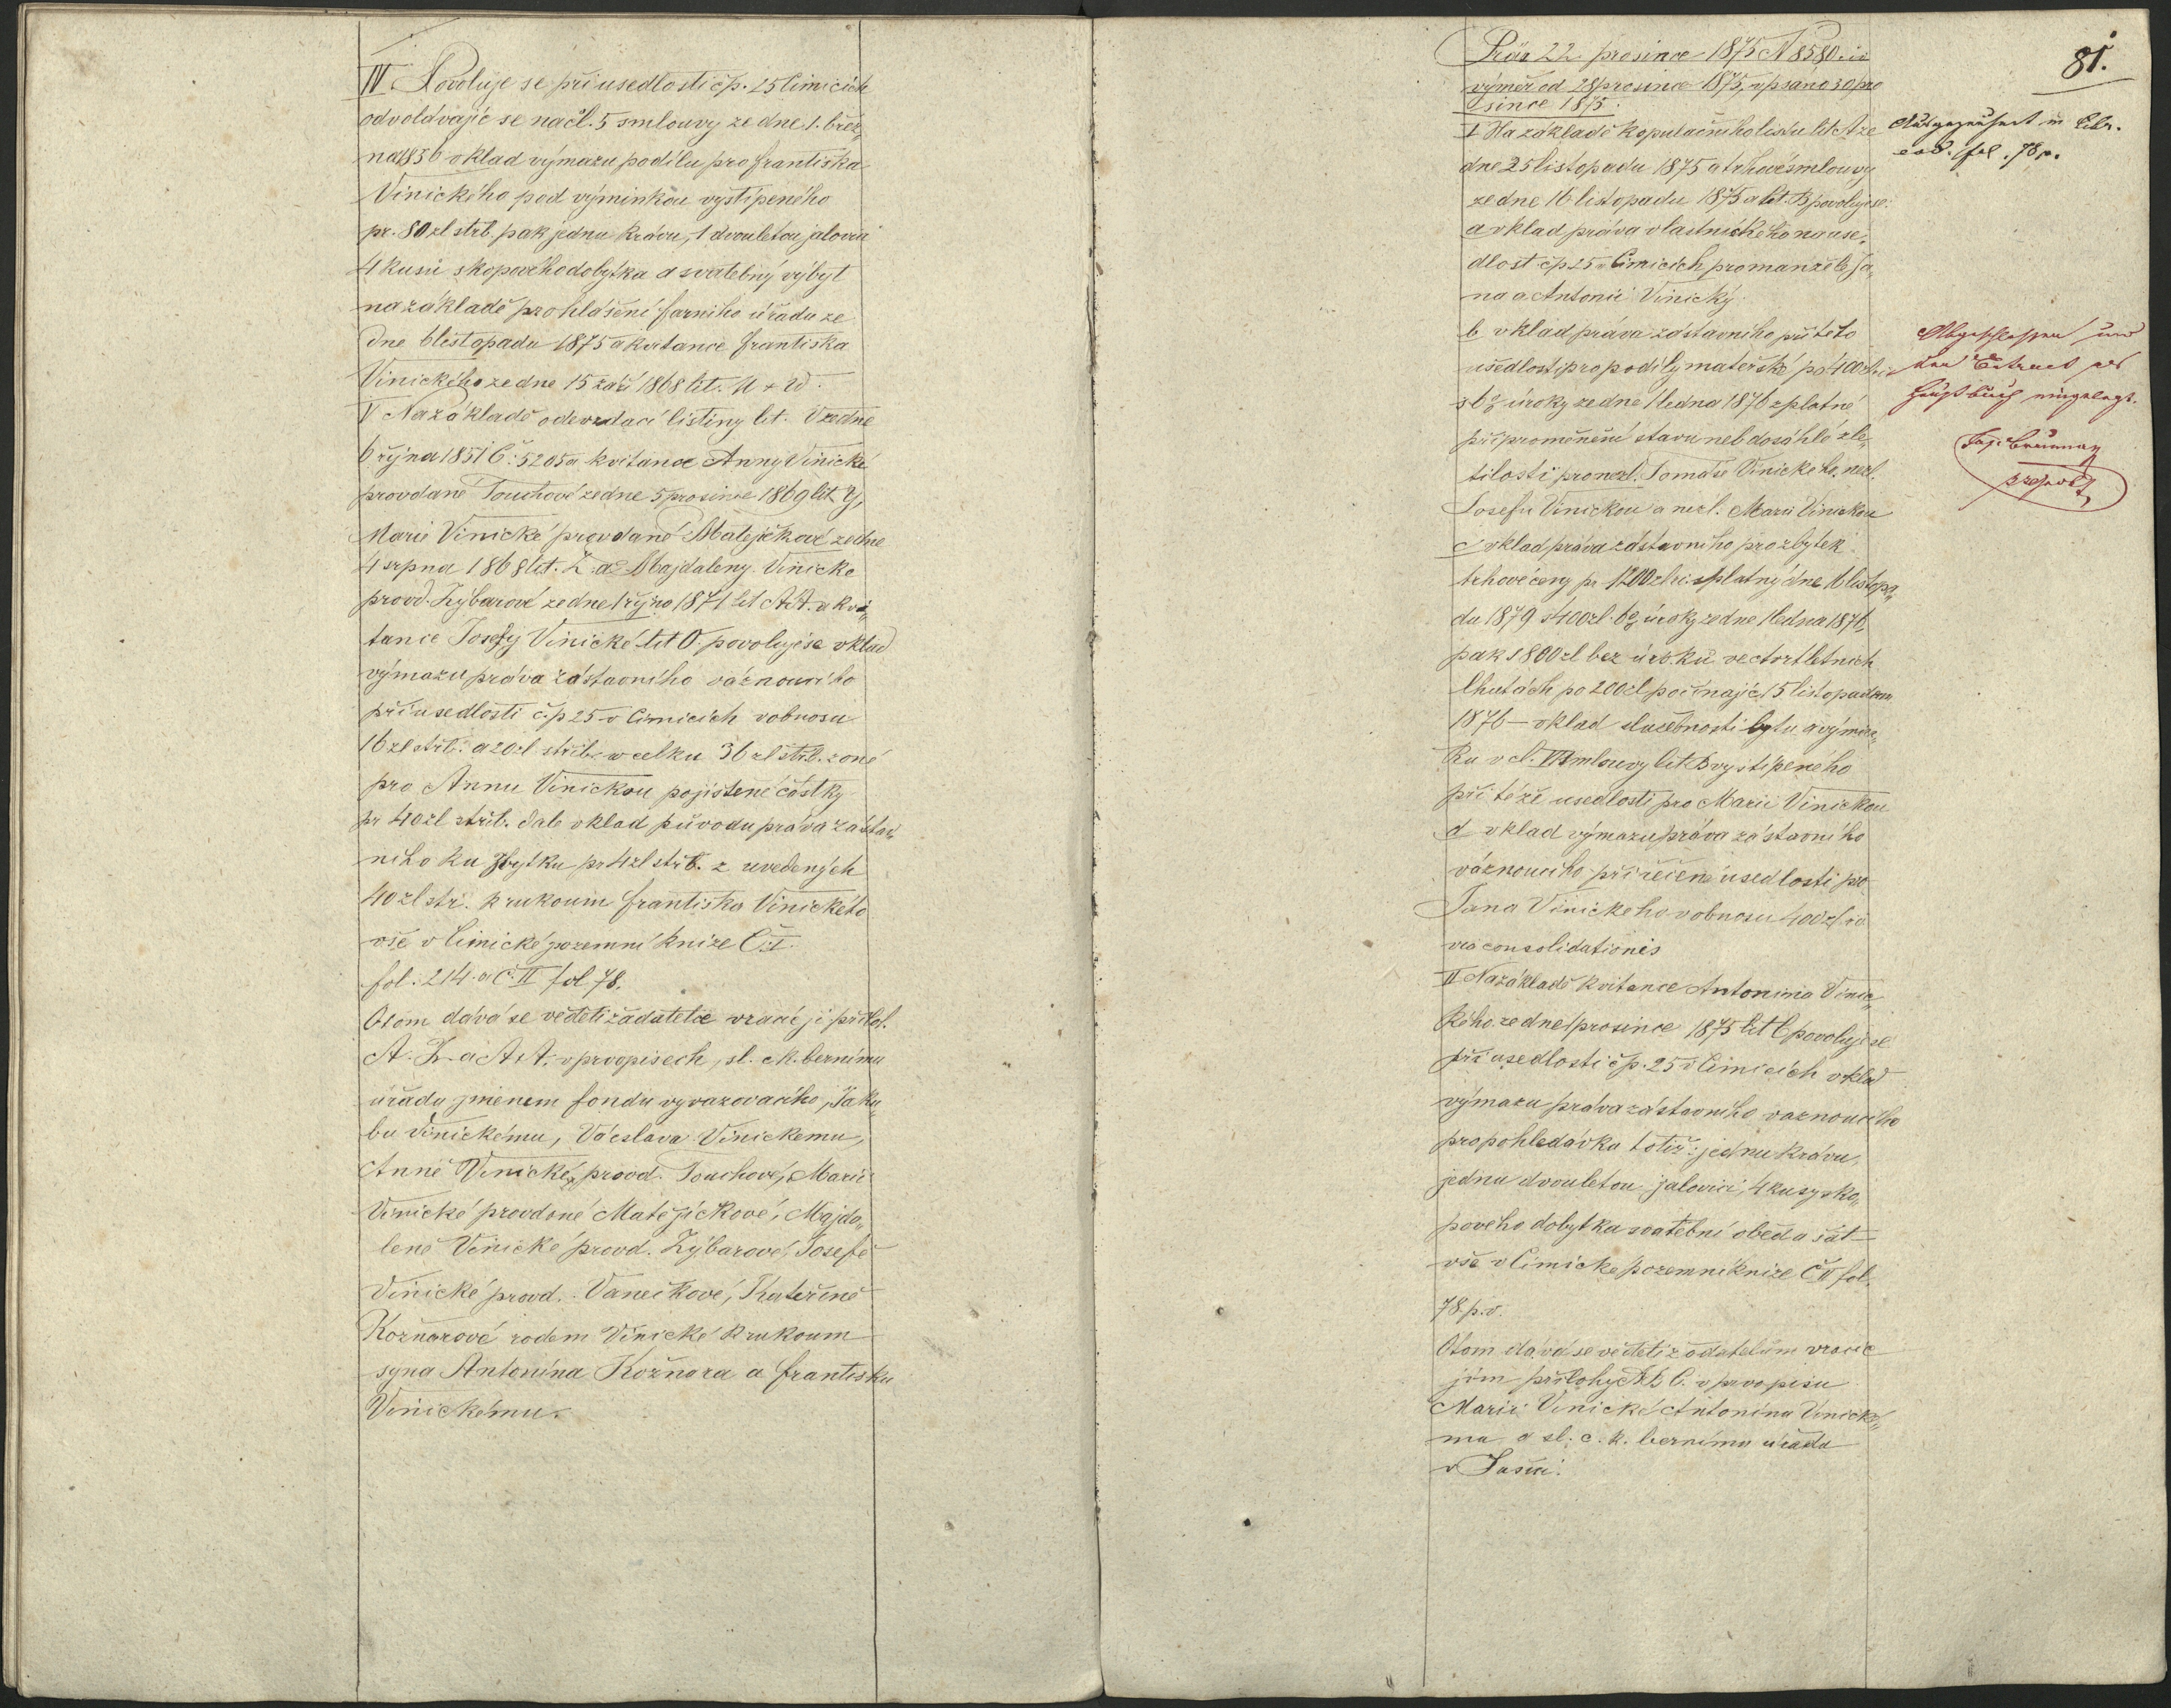 IV Povoluje se při usedlosti čp. 25 Čimicích
odvolávajíc se na čl. 5 smlouvy ze dne 1. břez„
na 1856 vklad výmazu podílu pro Františka
Vinického pod výminkou vystípeného
pr. 80 zl strb. pak jednu krávu, 1 dvouletou jalovici
4 kusů skopového dobytka a svatebný výbyt
na základě prohlášení farního úřadu ze
dne 6 listopadu 1875 a kvitance Františka
Vinického ze dne 15 září 1868 lit. U + W.
V Na základě odevzdací listiny lit. V ze dne
6 října 1851 Č: 5205 a kvitance Anny Vinické
provdané Touchové ze dne 5 prosince 1869 lit Y,
Marie Vinické provdané Matejčkové ze dne
4 srpna 1868 lit. Z. a Majdaleny Vinické
provd. Zýbarové ze dne 1 října 1871 lit AA. a kvi„
tance Josefy Vinické lit O. povoluje se vklad
výmazu práva zástavního váznoucího
při usedlosti č.p 25 v Čimicích v obnosu
16 zl strb. a 20 zl střib. v celku 36 zl strb. z oné
pro Annu Vinickou pojistené částky
pr 40 zl střib. dale vklad původu práva zástav„
niho ku zbytku pr 4 zl strb. z uvedených
40 zl stř. k rukoum Františka Vinického
vše v Čimické pozemní knize Č. I.
fol. 214. a Č. II fol 78.
O tom dává se vedeti žadatelce vracíc ji příloh.
A. Z. a AA. v prvopisech, sl. c.k. bernímu
úřadu jmenem fondu vyvazovacího, Jaku„
bu Vinickému, Vácslavu Vinickemu,
Anně Vinické, provd. Touchové, Marii
Vinické provdané Matějíčkové, Majda„
leně Vinické provd. Zýbarové, Josefě
Vinické provd. Vanečkové, Kateřině
Kožnarové rodem Vinické k rukoum
syna Antonína Kožnara a Františku
Vinickému.
81.
Präs 22. prosince 1875 N 8580. is
výměr od 28 prosince 1875, vpsáno 30 pro
since 1875.
I Na základě kopulačního listu lit A ze
dne 25 listopadu 1875 a trhové smlouvy
ze dne 16 listopadu 1875 a lit. B povoluje se:
a vklad práva vlastnického na use„
dlost čp 25 v Čimicích pro manžele Ja„
na a Antonii Vinický
b vklad práva zástavního při této
usedlosti pro podíly mateřské po 400 zl
s 6% úroky ze dne 1 ledna 1876 splatné
při proměnění stavu neb dosáhlé zle„
tilosti pro nezl. Tomáše Vinického, nezl.
Josefu Vinickou a nezl. Marii Vinickou
c vklad práva zástavního pro zbytek
trhové ceny pr. 1200 zl splatný dne 16 listopa„
du 1879 s 400 zl. 6% úroky ze dne 1 ledna 1876,
pak s 800 zl bez úroků ve čtvrtletních
lhutách po 200 zl počínajíc 15 listopadem
1876 – vklad služebnosti bytu a výmin„
ku v čl. VII smlouvy lit. B vystípeného
při téže usedlosti pro Marii Vinickou
d vklad výmazu práva zástavního
váznoucího při řečené usedlosti pro
Jana Vinického v obnosu 400 zl
via consolidationis
II Na základě kvitance Antonína Vinic„
kého ze dne 1 prosince 1875 lit C povoluje se
při usedlosti čp. 25 v Čimicích vklad
výmazu práva zástavního váznoucího
pro pohledávku totiž: jednu krávu,
jednu dvouletou jalovici, 4 kusy sko„
pového dobytka svatební oběd a šat –
vše v Čimické pozemní knize Č II fol.
78. p. v.
O tom dává se vedeti žadatelům vracíc
jim přílohy A B C. v prvopisu
Marii Vinické, Antonínu Vinické„
mu a sl. c. k. bernímu úřadu
v Sušici.
in Libr.
eod. fol. 78 p.
Abgeschlossen und
den Extract als
Hauptbuch eingelegt.